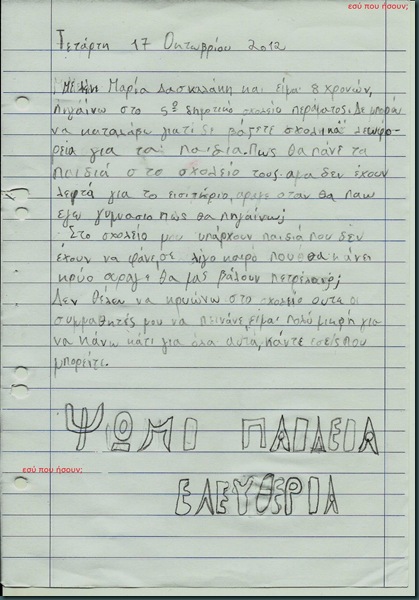 εσύ που ήσουν;
Τετάρτη 17 Οκτωβρίου 2012
Με λεν Μαρία Δασκαλάκη και είμαι 8 χρονών,
πηγαίνω στο 5º δημοτικό σχολείο περάματος. Δε μπορώ
να καταλάβω γιατί δε βάζετε σχολικά λεωφο-
ρεία για τα παιδιά. Πως θα πάνε τα
παιδιά στο σχολείο τους αμα δεν έχουν
λεφτά για το εισιτήριο, αραγε οταν θα παω
εγω γυμνασιο πώς θα πηγαίνω;
Στο σχολείο μου υπάρχουν παιδιά που δεν
έχουν να φάνε, σε λίγο καιρό που θα κάνει
κρύο αραγε θα μας βάλουν πετρέλαιο;
Δεν θέλω να κρυώνω στο σχολείο ουτε οι
συμμαθητές μου να πεινάνε, είμαι πολύ μικρή για
να κάνω κάτι για όλα αυτα, κάντε εσείς που
μπορείτε.
ΨΩΜΙ ΠΑΙΔΕΙΑ
εσύ που ήσουν;
ΕΛΕΥΘΕΡΙΑ